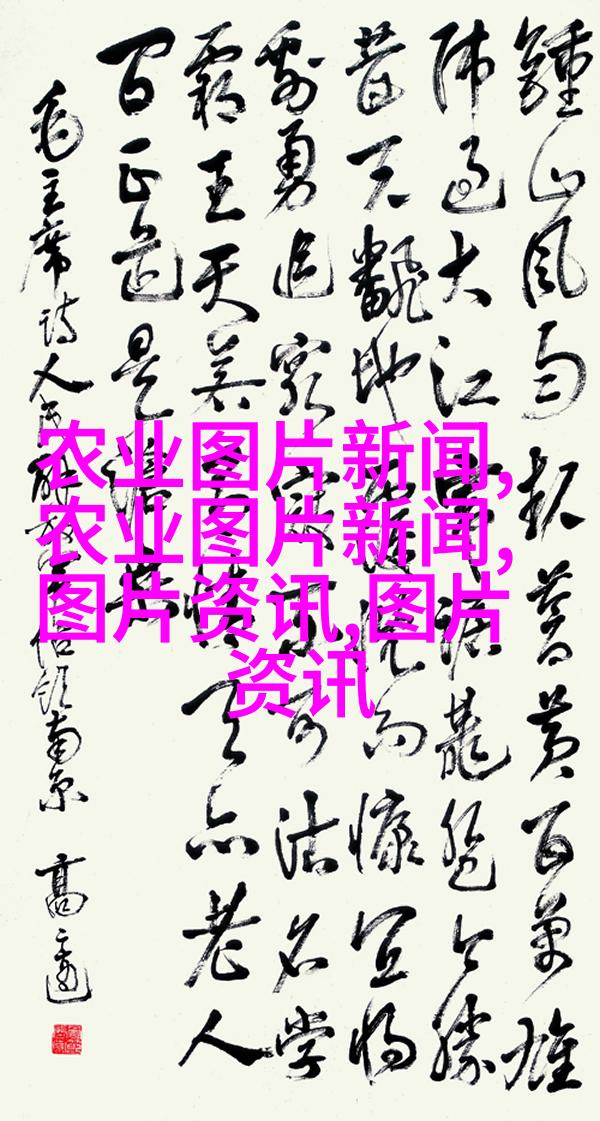 鍾山風雨起蒼黄百萬雄
师過大江虎踞龍盤今勝
昔天翻地覆慨而慷宜將
剩勇追窮寇不可沽名学
霸王天若有情天亦老人
間正道是滄桑
毛主席诗人民解放军佔领南京 高
农业图片新闻,
农业图片新闻,
图片资讯,图片
资讯